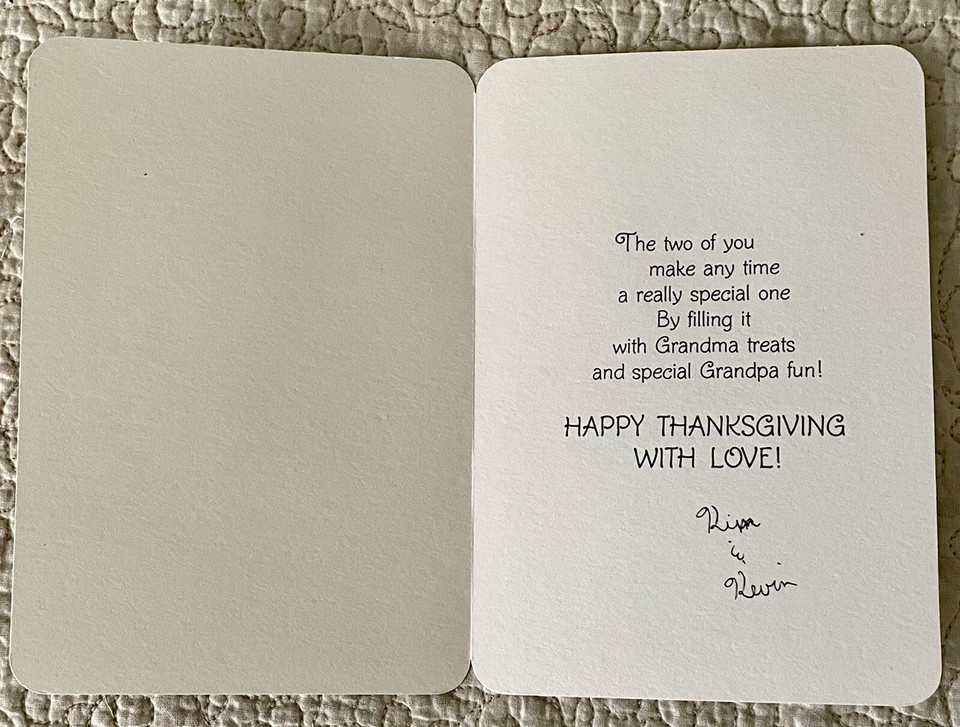 The two of you
make any time
a really special one
By filling it
with Grandma treats
and special Grandpa fun!
HAPPY THANKSGIVING
WITH LOVE!
Kim
&
Kevin